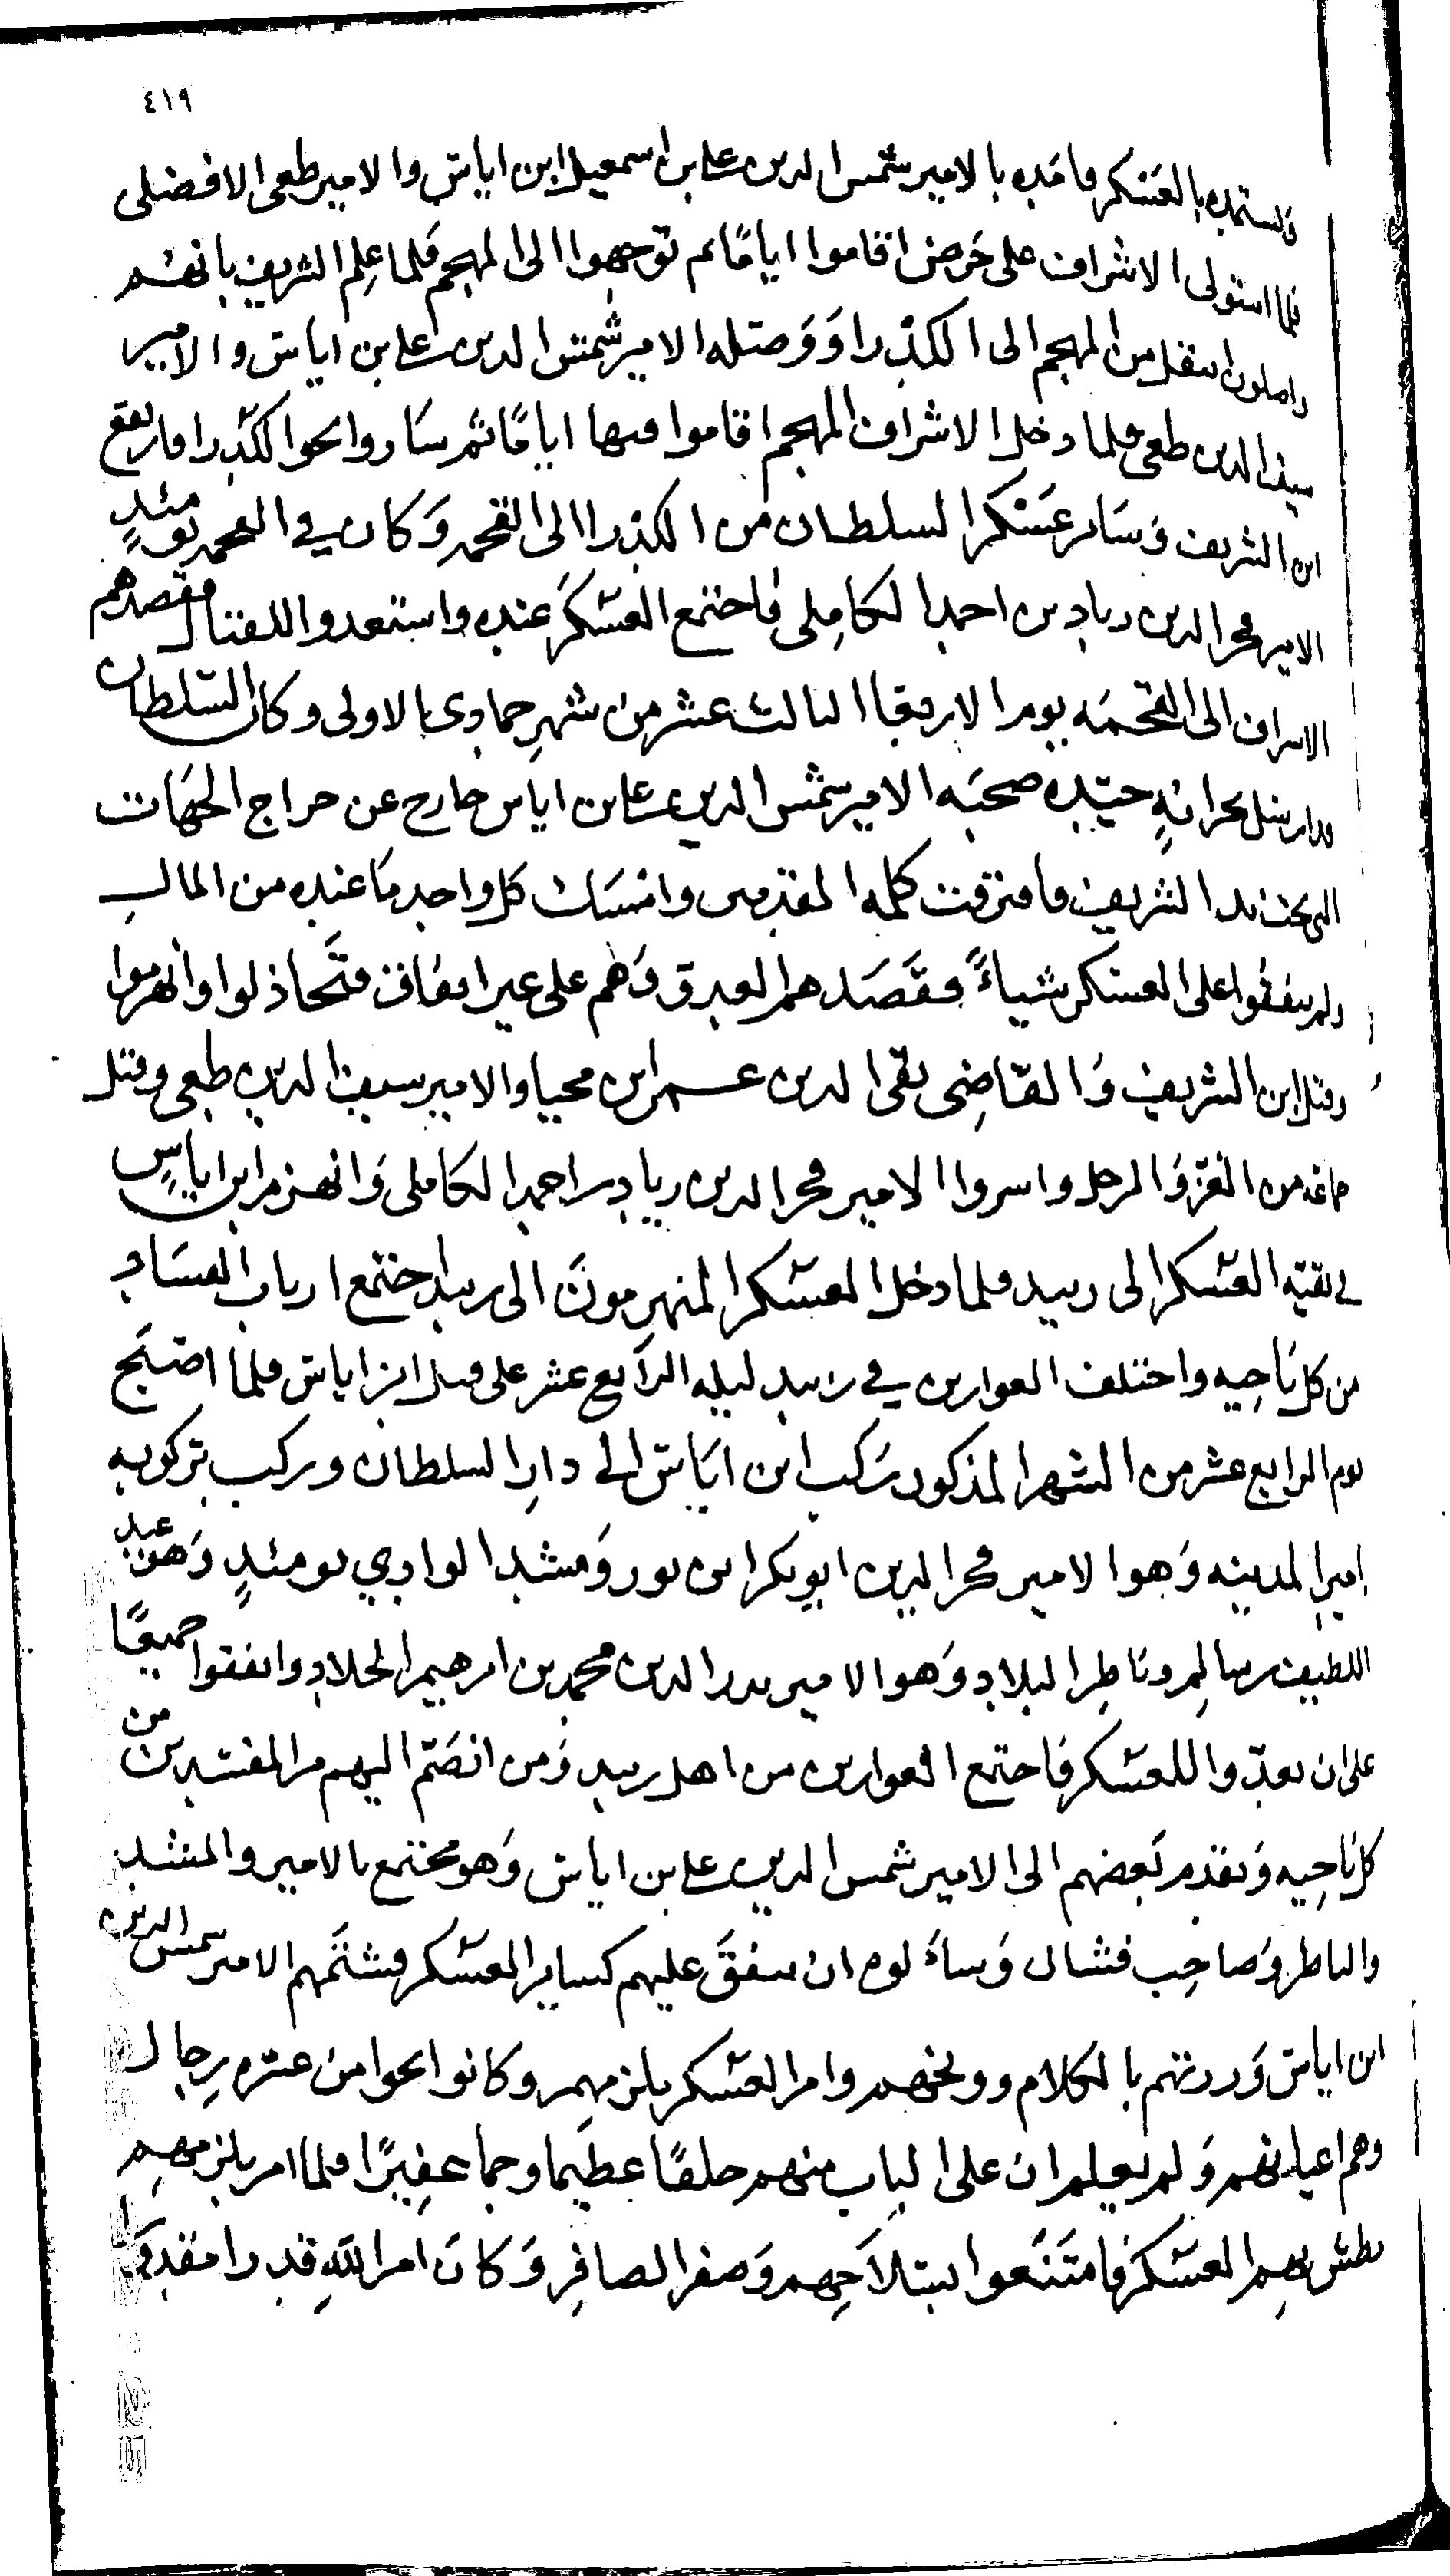 ٤١٩
ويستمده بالعسكر فامده بالامير شمس الدين علي بن اسمعيل ابن اياس والامير طغى الافضلى
فلما استولى الاشراف على حرض اقاموا اياما ثم توجهوا الى المهجم فلما علم الشريف بانهم
واصلون انتقل من المهجم الى الكدرا ووصله الامير شمس الدين علي بن اياس والامير
سيف الدين طغى فلما دخل الاشراف المهجم اقاموا فيها اياما ثم ساروا نحو الكدرا فارتفع
ابن الشريف وسار عسكر السلطان من الكدرا الى القحمه وكان في القحمه يومئذ
الامير فخر الدين زياد بن احمد الكاملى فاجتمع العسكر عنده واستعدوا للقتال فقصدهم
الاشراف الى القحمه يوم الاربعا الثالث عشر من شهر جمادى الاولى وكان السلطان
قد ارسل بخزانه جيده صحبه الامير شمس الدين علي بن اياس خارج عن خراج الجهات
التى تحت يد الشريف فافترقت كلمه المقدمين وامسك كل واحد ما عنده من المال
ولم ينفقوا على العسكر شياء فقصدهم العدو وهم على غير اتفاق فتخاذلوا وانهزموا
وقتل ابن الشريف والقاضى تقى الدين عمر ابن محيا والامير سيف الدين طغى وقتل
جماعه من الغز والرجل واسروا الامير فخر الدين زياد بن احمد الكاملى وانهزم ابن اياس
في بقيه العسكر الى زبيد فلما دخل العسكر المنهزمون الى زبيد اجتمع ارباب الفساد
من كل ناحيه واختلف العوارين في زبيد ليله الرابع عشر على قتل ابن اياس فلما اصبح
يوم الرابع عشر من الشهر المذكور ركب ابن اياس الى دار السلطان وركب بركوبه
امير المدينه وهو الامير فخر الدين ابو بكر ابن نور ومشد الوادي يومئذ وهو عبد
اللطيف بن سالم وناظر البلاد وهو الامير بدر الدين محمد بن ابرهيم الجلاد واتفقوا جميعا
على ان يعدوا للعسكر فاجتمع العوارين من اهل زبيد ومن انضم اليهم من المفسدين من
كل ناحيه وتقدم بعضهم الى الامير شمس الدين علي بن اياس وهو مجتمع بالامير والمشد
والناظر وصاحب فشال وسالوه ان ينفق عليهم كساير العسكر فشتمهم الامير شمس الدين
ابن اياس وردهم بالكلام ووبخهم وامر العسكر بلزمهم وكانوا نحوا من عشره رجال
وهم اعيانهم ولم يعلم ان على الباب منهم خلقا عظيما وجما غفيرا فلما امر بلزمهم
بطش بهم العسكر فامتنعوا بسلاحهم وصفر الصافر وكان امر الله قدرا مقدورا